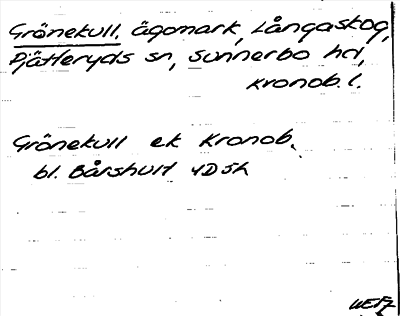 Grönekull, ägomark, Långaskog,
Pjätteryds sn, Sunnerbo hd,
Kronob. l.
Grönekull ek Kronob.
bl. Bårshult 4D5h